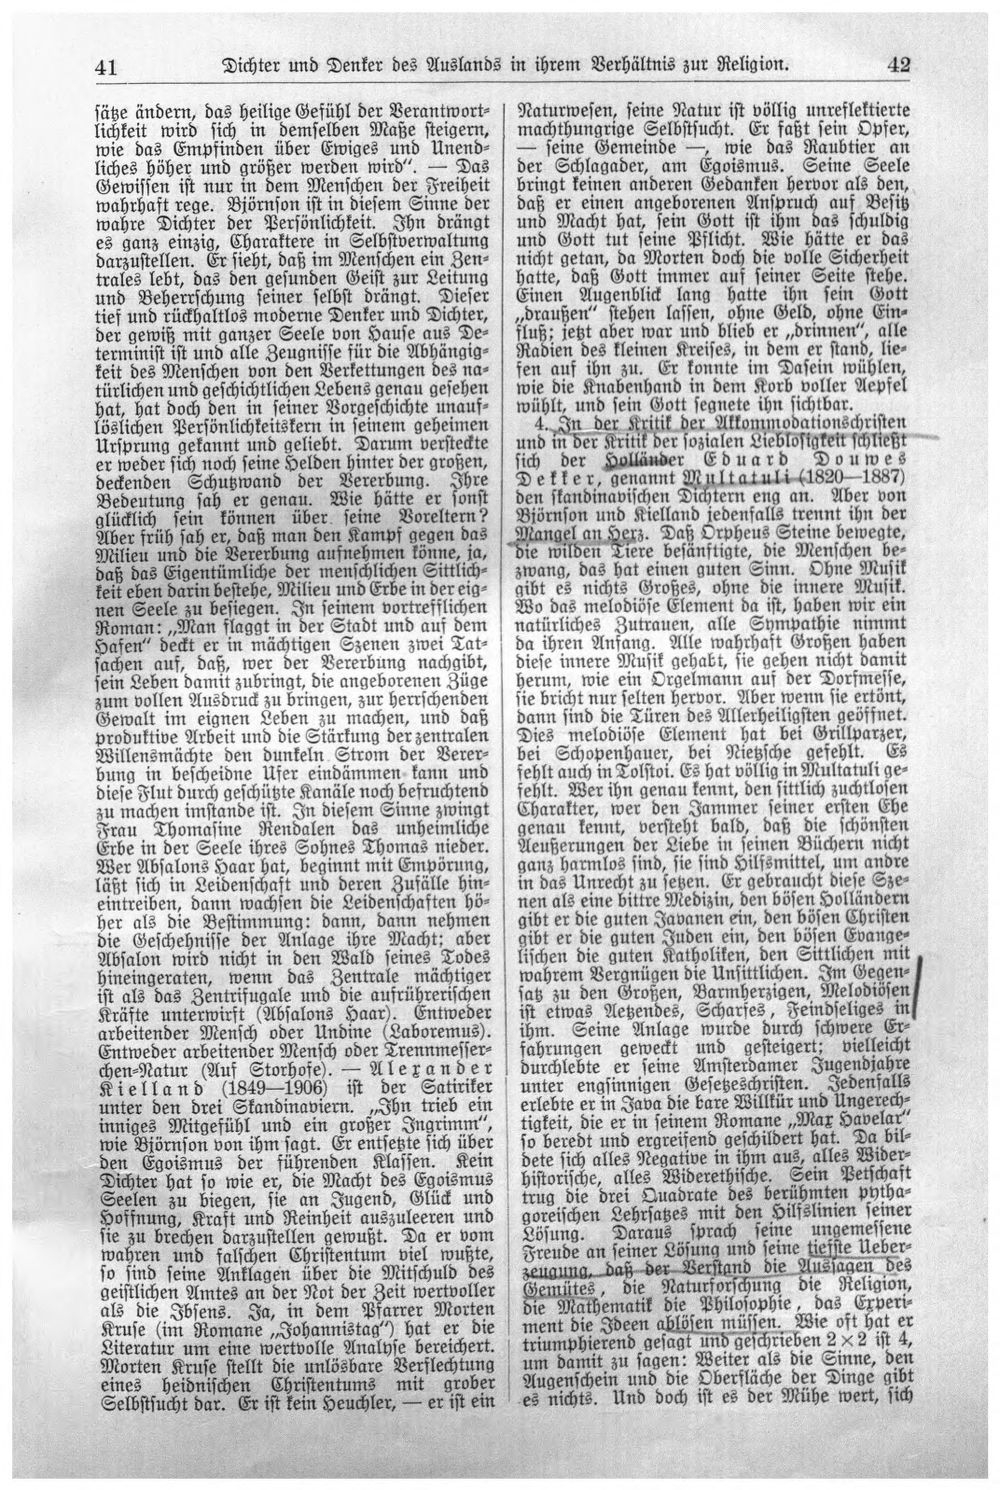 41 Dichter und Denker des Auslands in ihrem Verhältnis zur Religion. 42
sätze ändern, das heilige Gefühl der Verantwort-
lichkeit wird sich in demselben Maße steigern,
wie das Empfinden über Ewiges und Unend-
liches höher und größer werden wird“. — Das
Gewissen ist nur in dem Menschen der Freiheit
wahrhaft rege. Björnson ist in diesem Sinne der
wahre Dichter der Persönlichkeit. Ihn drängt
es ganz einzig, Charaktere in Selbstverwaltung
darzustellen. Er sieht, daß im Menschen ein Zen-
trales lebt, das den gesunden Geist zur Leitung
und Beherrschung seiner selbst drängt. Dieser
tief und rückhaltlos moderne Denker und Dichter,
der gewiß mit ganzer Seele von Hause aus De-
terminist ist und alle Zeugnisse für die Abhängig-
keit des Menschen von den Verkettungen des na-
türlichen und geschichtlichen Lebens genau gesehen
hat, hat doch den in seiner Vorgeschichte unauf-
löslichen Persönlichkeitskern in seinem geheimen
Ursprung gekannt und geliebt. Darum versteckte
er weder sich noch seine Helden hinter der großen,
deckenden Schutzwand der Vererbung. Ihre
Bedeutung sah er genau. Wie hätte er sonst
glücklich sein können über seine Voreltern?
Aber früh sah er, daß man den Kampf gegen das
Milieu und die Vererbung aufnehmen könne, ja,
daß das Eigentümliche der menschlichen Sittlich-
keit eben darin bestehe, Milieu und Erbe in der eig-
nen Seele zu besiegen. In seinem vortrefflichen
Roman: „Man flaggt in der Stadt und auf dem
Hafen“ deckt er in mächtigen Szenen zwei Tat-
sachen auf, daß, wer der Vererbung nachgibt,
sein Leben damit zubringt, die angeborenen Züge
zum vollen Ausdruck zu bringen, zur herrschenden
Gewalt im eignen Leben zu machen, und daß
produktive Arbeit und die Stärkung der zentralen
Willensmächte den dunkeln Strom der Verer-
bung in bescheidne Ufer eindämmen kann und
diese Flut durch geschützte Kanäle noch befruchtend
zu machen imstande ist. In diesem Sinne zwingt
Frau Thomasine Rendalen das unheimliche
Erbe in der Seele ihres Sohnes Thomas nieder.
Wer Absalons Haar hat, beginnt mit Empörung,
läßt sich in Leidenschaft und deren Zufälle hin-
eintreiben, dann wachsen die Leidenschaften hö-
her als die Bestimmung: dann, dann nehmen
die Geschehnisse der Anlage ihre Macht; aber
Absalon wird nicht in den Wald seines Todes
hineingeraten, wenn das Zentrale mächtiger
ist als das Zentrifugale und die aufrührerischen
Kräfte unterwirft (Absalons Haar). Entweder
arbeitender Mensch oder Undine (Laboremus).
Entweder arbeitender Mensch oder Trennmesser-
chen-Natur (Auf Storhofe). — Alexander
Kielland (1849—1906) ist der Satiriker
unter den drei Skandinaviern. „Ihn trieb ein
inniges Mitgefühl und ein großer Ingrimm“,
wie Björnson von ihm sagt. Er entsetzte sich über
den Egoismus der führenden Klassen. Kein
Dichter hat so wie er, die Macht des Egoismus
Seelen zu biegen, sie an Jugend, Glück und
Hoffnung, Kraft und Reinheit auszuleeren und
sie zu brechen darzustellen gewußt. Da er vom
wahren und falschen Christentum viel wußte,
so sind seine Anklagen über die Mitschuld des
geistlichen Amtes an der Not der Zeit wertvoller
als die Ibsens. Ja, in dem Pfarrer Morten
Kruse (im Romane „Johannistag“) hat er die
Literatur um eine wertvolle Analyse bereichert.
Morten Kruse stellt die unlösbare Verflechtung
eines heidnischen Christentums mit grober
Selbstsucht dar. Er ist kein Heuchler, — er ist ein
Naturwesen, seine Natur ist völlig unreflektierte
machthungrige Selbstsucht. Er faßt sein Opfer,
— seine Gemeinde —, wie das Raubtier an
der Schlagader, am Egoismus. Seine Seele
bringt keinen anderen Gedanken hervor als den,
daß er einen angeborenen Anspruch auf Besitz
und Macht hat, sein Gott ist ihm das schuldig
und Gott tut seine Pflicht. Wie hätte er das
nicht getan, da Morten doch die volle Sicherheit
hatte, daß Gott immer auf seiner Seite stehe.
Einen Augenblick lang hatte ihn sein Gott
„draußen“ stehen lassen, ohne Geld, ohne Ein-
fluß; jetzt aber war und blieb er „drinnen“, alle
Radien des kleinen Kreises, in dem er stand, lie-
fen auf ihn zu. Er konnte im Dasein wühlen,
wie die Knabenhand in dem Korb voller Aepfel
wühlt, und sein Gott segnete ihn sichtbar.
4. In der Kritik der Akkommodationschristen
und in der Kritik der sozialen Lieblosigkeit schließt
sich der Holländer Eduard Douwes
Dekker, genannt Multatuli (1820—1887)
den skandinavischen Dichtern eng an. Aber von
Björnson und Kielland jedenfalls trennt ihn der
Mangel an Herz. Daß Orpheus Steine bewegte,
die wilden Tiere besänftigte, die Menschen be-
zwang, das hat einen guten Sinn. Ohne Musik
gibt es nichts Großes, ohne die innere Musik.
Wo das melodiöse Element da ist, haben wir ein
natürliches Zutrauen, alle Sympathie nimmt
da ihren Anfang. Alle wahrhaft Großen haben
diese innere Musik gehabt, sie gehen nicht damit
herum, wie ein Orgelmann auf der Dorfmesse,
sie bricht nur selten hervor. Aber wenn sie ertönt,
dann sind die Türen des Allerheiligsten geöffnet.
Dies melodiöse Element hat bei Grillparzer,
bei Schopenhauer, bei Nietzsche gefehlt. Es
fehlt auch in Tolstoi. Es hat völlig in Multatuli ge-
fehlt. Wer ihn genau kennt, den sittlich zuchtlosen
Charakter, wer den Jammer seiner ersten Ehe
genau kennt, versteht bald, daß die schönsten
Aeußerungen der Liebe in seinen Büchern nicht
ganz harmlos sind, sie sind Hilfsmittel, um andre
in das Unrecht zu setzen. Er gebraucht diese Sze-
nen als eine bittre Medizin, den bösen Holländern
gibt er die guten Javanen ein, den bösen Christen
gibt er die guten Juden ein, den bösen Evange-
lischen die guten Katholiken, den Sittlichen mit
wahrem Vergnügen die Unsittlichen. Im Gegen-
satz zu den Großen, Barmherzigen, Melodiösen
ist etwas Aetzendes, Scharfes, Feindseliges in
ihm. Seine Anlage wurde durch schwere Er-
fahrungen geweckt und gesteigert; vielleicht
durchlebte er seine Amsterdamer Jugendjahre
unter engsinnigen Gesetzeschristen. Jedenfalls
erlebte er in Java die bare Willkür und Ungerech-
tigkeit, die er in seinem Romane „Max Havelar“
so beredt und ergreifend geschildert hat. Da bil-
dete sich alles Negative in ihm aus, alles Wider-
historische, alles Widerethische. Sein Petschaft
trug die drei Quadrate des berühmten pytha-
goreischen Lehrsatzes mit den Hilfslinien seiner
Lösung. Daraus sprach seine ungemessene
Freude an seiner Lösung und seine tiefste Ueber-
zeugung, daß der Verstand die Aussagen des
Gemütes, die Naturforschung die Religion,
die Mathematik die Philosophie, das Experi-
ment die Ideen ablösen müssen. Wie oft hat er
triumphierend gesagt und geschrieben 2 × 2 ist 4,
um damit zu sagen: Weiter als die Sinne, den
Augenschein und die Oberfläche der Dinge gibt
es nichts. Und doch ist es der Mühe wert, sich